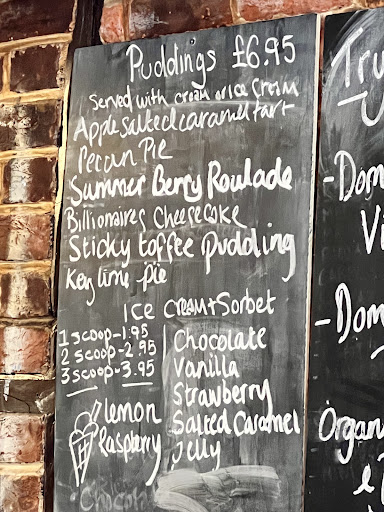 Puddings £6.95
Served with cream or ice cream
Apple salted caramel tart
Pecan Pie
Summer Berry Roulade
Billionaires Cheesecake
Sticky toffee pudding
Key lime pie
Ice cream + Sorbet
1 scoop - 1.95
2 scoop - 2.95
3 scoop - 3.95
lemon
Raspberry
Chocolate
Vanilla
Strawberry
Salted Caramel
Jelly
Tru
- Dom
Vi
- Dom
Organ